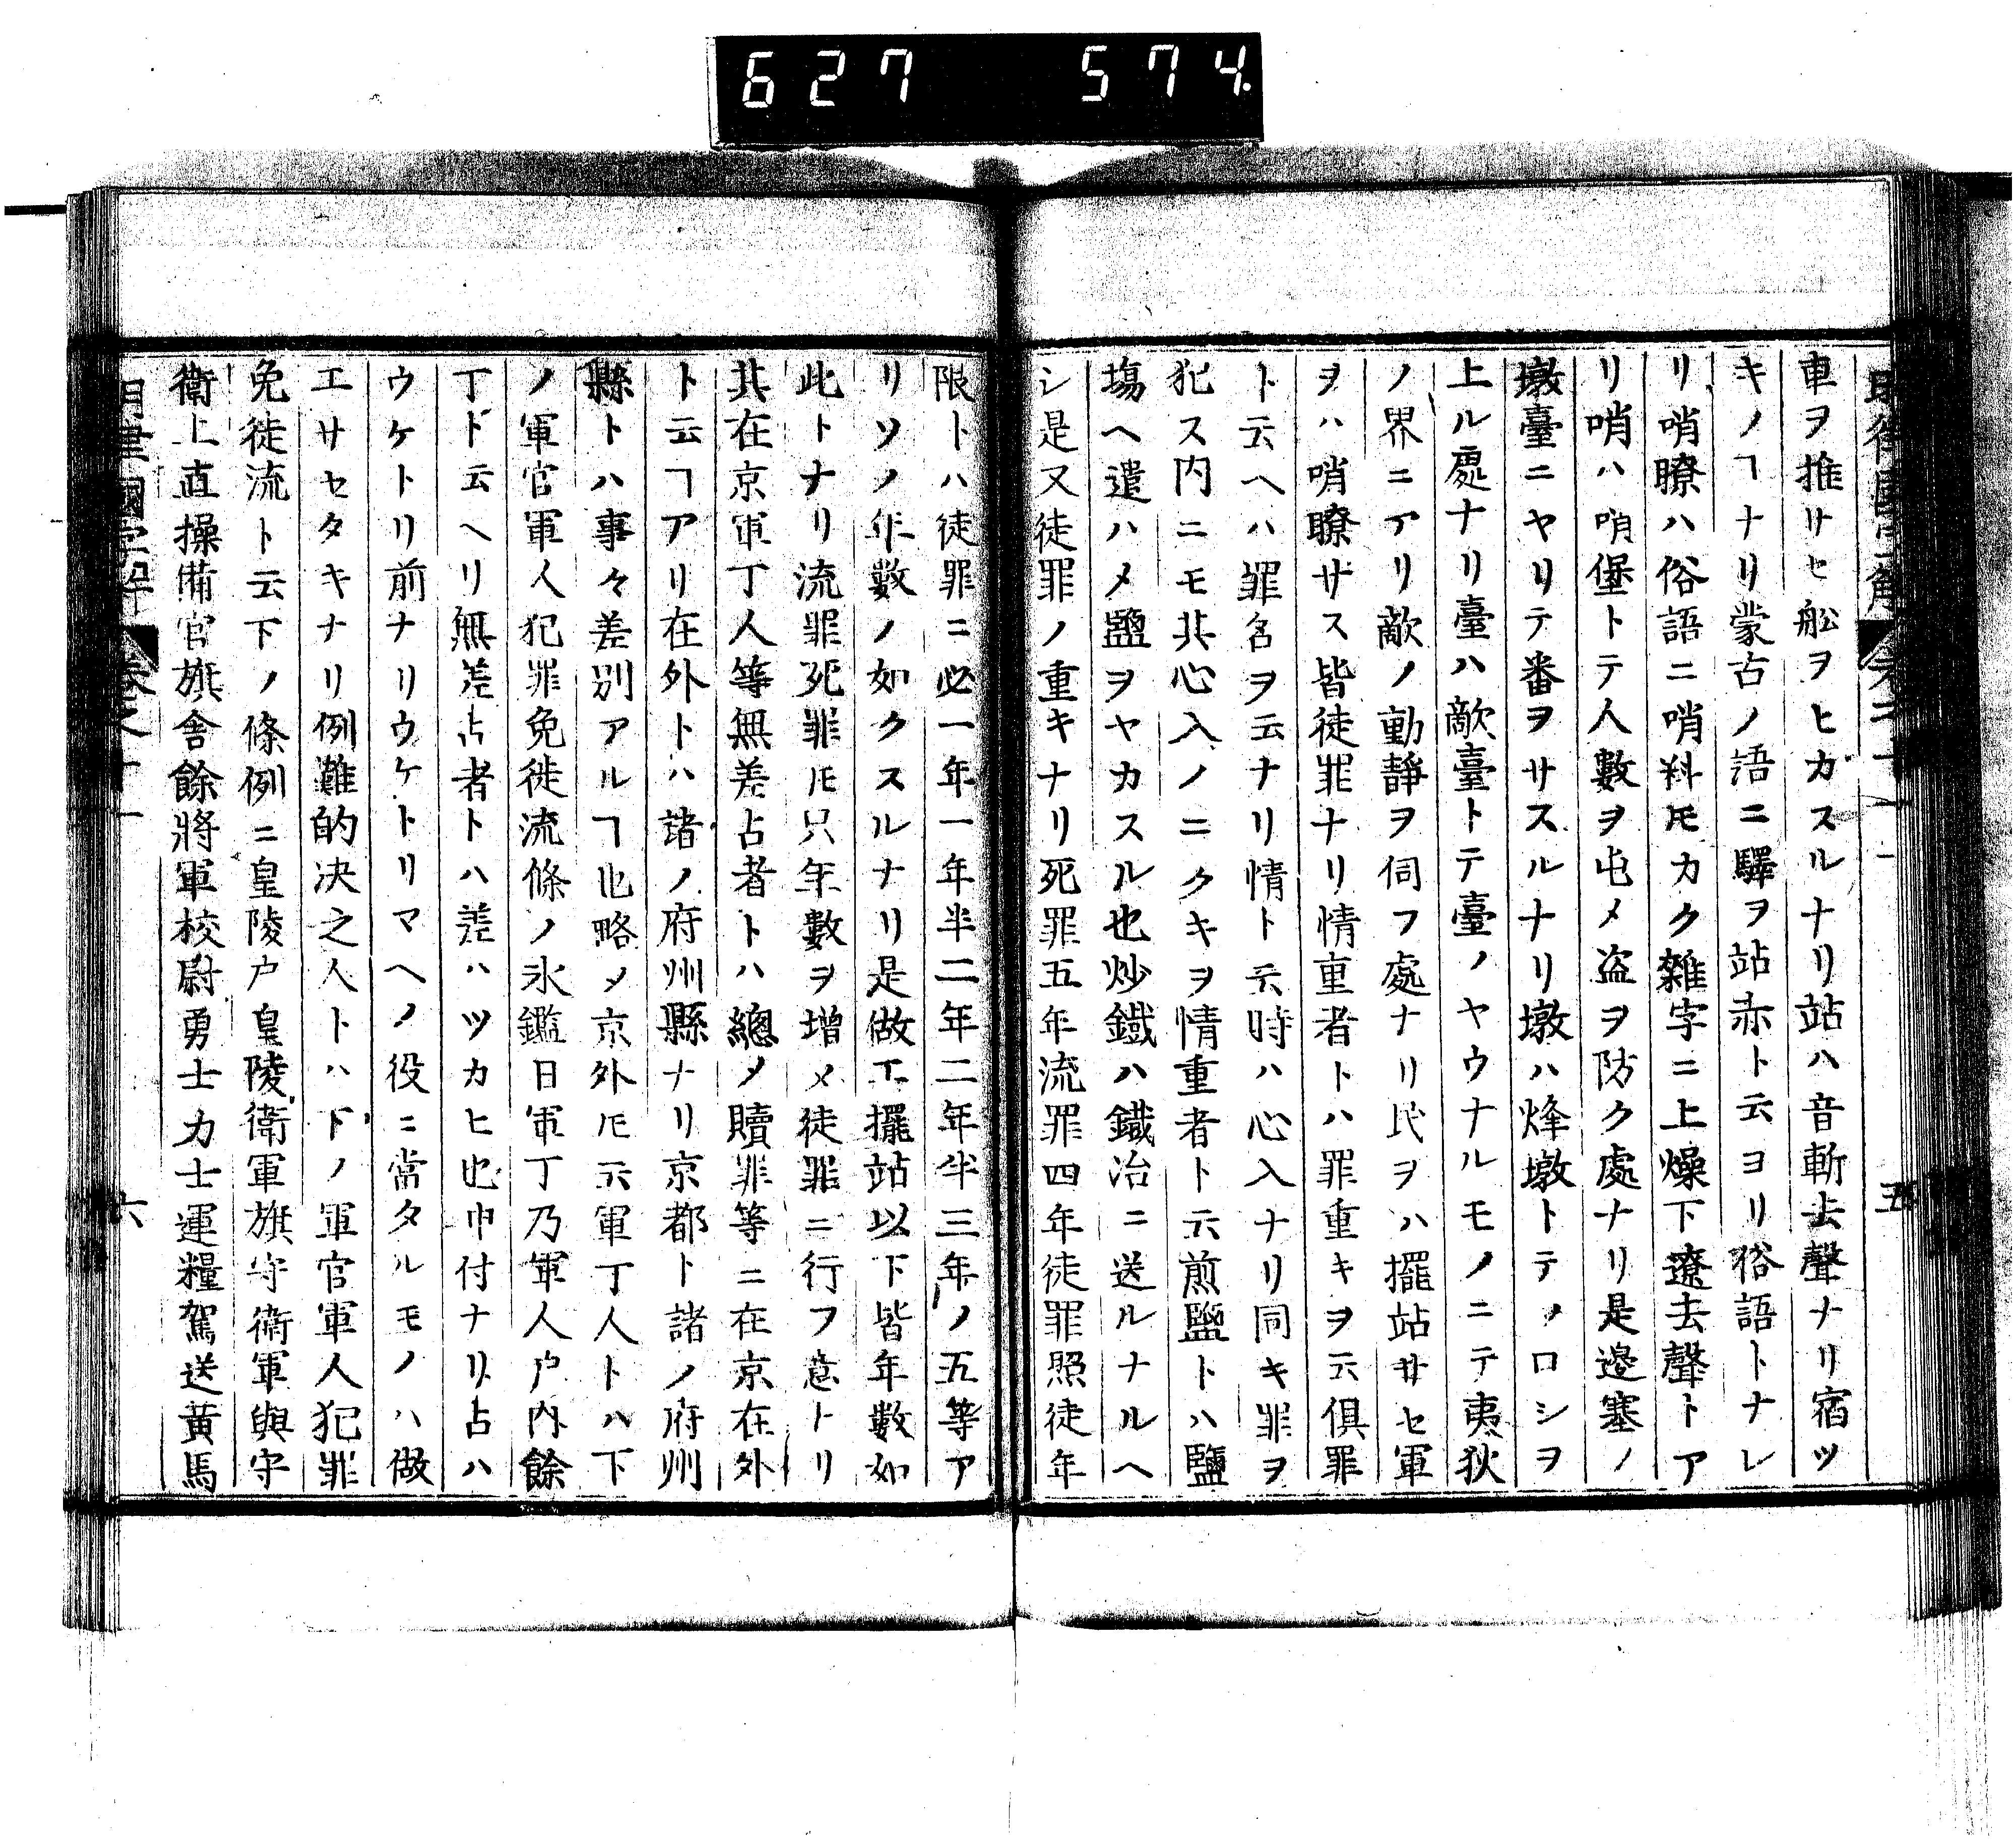 627 574
五
車ヲ推サセ舩ヲヒカスルナリ站ハ音斬去聲ナリ宿ツ
キノヿナリ蒙古ノ語ニ驛ヲ站赤ト云ヨリ俗語トナレ
リ哨瞭ハ俗語ニ哨料𪜈カク雜字ニ上燥下遼去聲トア
リ哨ハ哨堡トテ人數ヲ屯メ盗ヲ防ク處ナリ是邉塞ノ
墩臺ニヤリテ番ヲサスルナリ墩ハ烽墩トテノロシヲ
上ル處ナリ臺ハ敵臺トテ臺ノヤウナルモノニテ夷狄
ノ界ニアリ敵ノ動靜ヲ伺フ處ナリ民ヲハ擺站サセ軍
ヲハ哨瞭サス皆徒罪ナリ情重者トハ罪重キヲ云俱罪
ト云ヘハ罪名ヲ云ナリ情ト云時ハ心入ナリ同キ罪ヲ
犯ス内ニモ其心入ノニクキヲ情重者ト云煎鹽トハ鹽
塲ヘ遣ハメ鹽ヲヤカスル也炒鐵ハ鐵冶ニ送ルナルヘ
シ是又徒罪ノ重キナリ死罪五年流罪四年徒罪照徒年
限トハ徒罪ニ必一年一年半二年二年半三年ノ五等ア
リソノ年數ノ如クスルナリ是做工擺站以下皆年數如
此トナリ流罪死罪𪜈只年數ヲ増メ徒罪ニ行フ意トリ
其在京軍丁人等無差占者トハ總メ贖罪等ニ在京在外
ト云ヿアリ在外トハ諸ノ府州縣ナリ京都ト諸ノ府州
縣トハ事々差別アルヿ也略メ京外𪜈云軍丁人トハ下
ノ軍官軍人犯罪免徙流條ノ氷鑑日軍丁乃軍人户内餘
丁ト云ヘリ無差占者トハ差ハツカヒ也申付ナリ占ハ
ウケトリ前ナリウケトリマヘノ役ニ當タルモノハ做
工サセタキナリ例難的决之人トハ下ノ軍官軍人犯罪
免徒流ト云下ノ條例ニ皇陵户皇陵衛軍旗守衛軍與守
衛上直操備官旗舎餘將軍校尉勇士力士運糧駕送黄馬
明律國字解 卷之十一 六